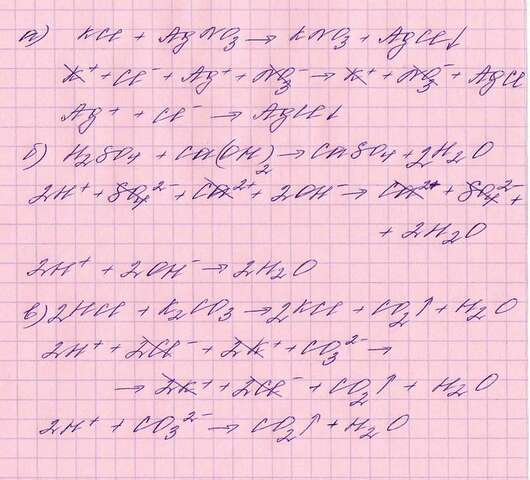 а) KCl + AgNO₃ → KNO₃ + AgCl↓
K⁺ + Cl⁻ + Ag⁺ + NO₃⁻ → K⁺ + NO₃⁻ + AgCl
Ag⁺ + Cl⁻ → AgCl↓
б) H₂SO₄ + Ca(OH)₂ → CaSO₄ + 2H₂O
2H⁺ + SO₄²⁻ + Ca²⁺ + 2OH⁻ → Ca²⁺ + SO₄²⁻ +
+ 2H₂O
2H⁺ + 2OH⁻ → 2H₂O
в) 2HCl + K₂CO₃ → 2KCl + CO₂↑ + H₂O
2H⁺ + 2Cl⁻ + 2K⁺ + CO₃²⁻ →
→ 2K⁺ + 2Cl⁻ + CO₂↑ + H₂O
2H⁺ + CO₃²⁻ → CO₂↑ + H₂O